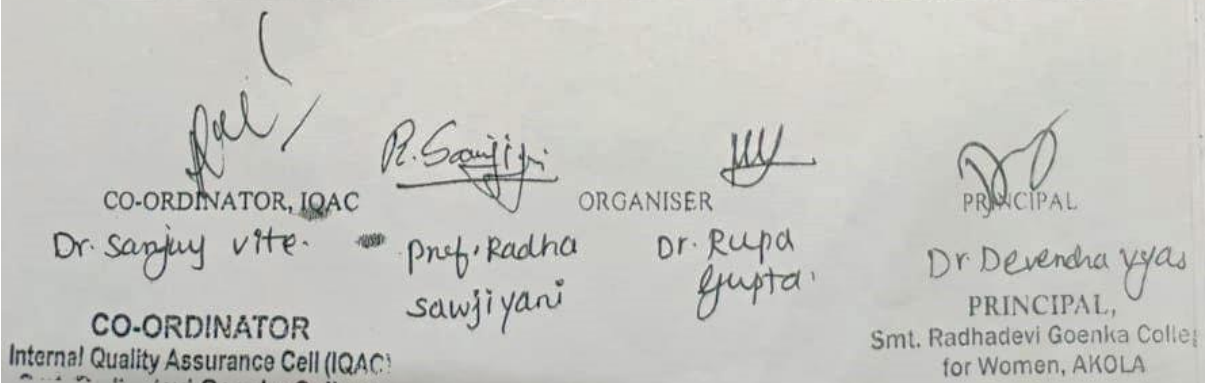 R. Sawjiyani
CO-ORDINATOR, IQAC
ORGANISER
PRINCIPAL
Dr. Sanjay Vite.
Prof. Radha
Sawjiyani
Dr. Rupa
Gupta
Dr Devendra Vyas
CO-ORDINATOR
Internal Quality Assurance Cell (IQAC)
PRINCIPAL,
Smt. Radhadevi Goenka Colle
for Women, AKOLA